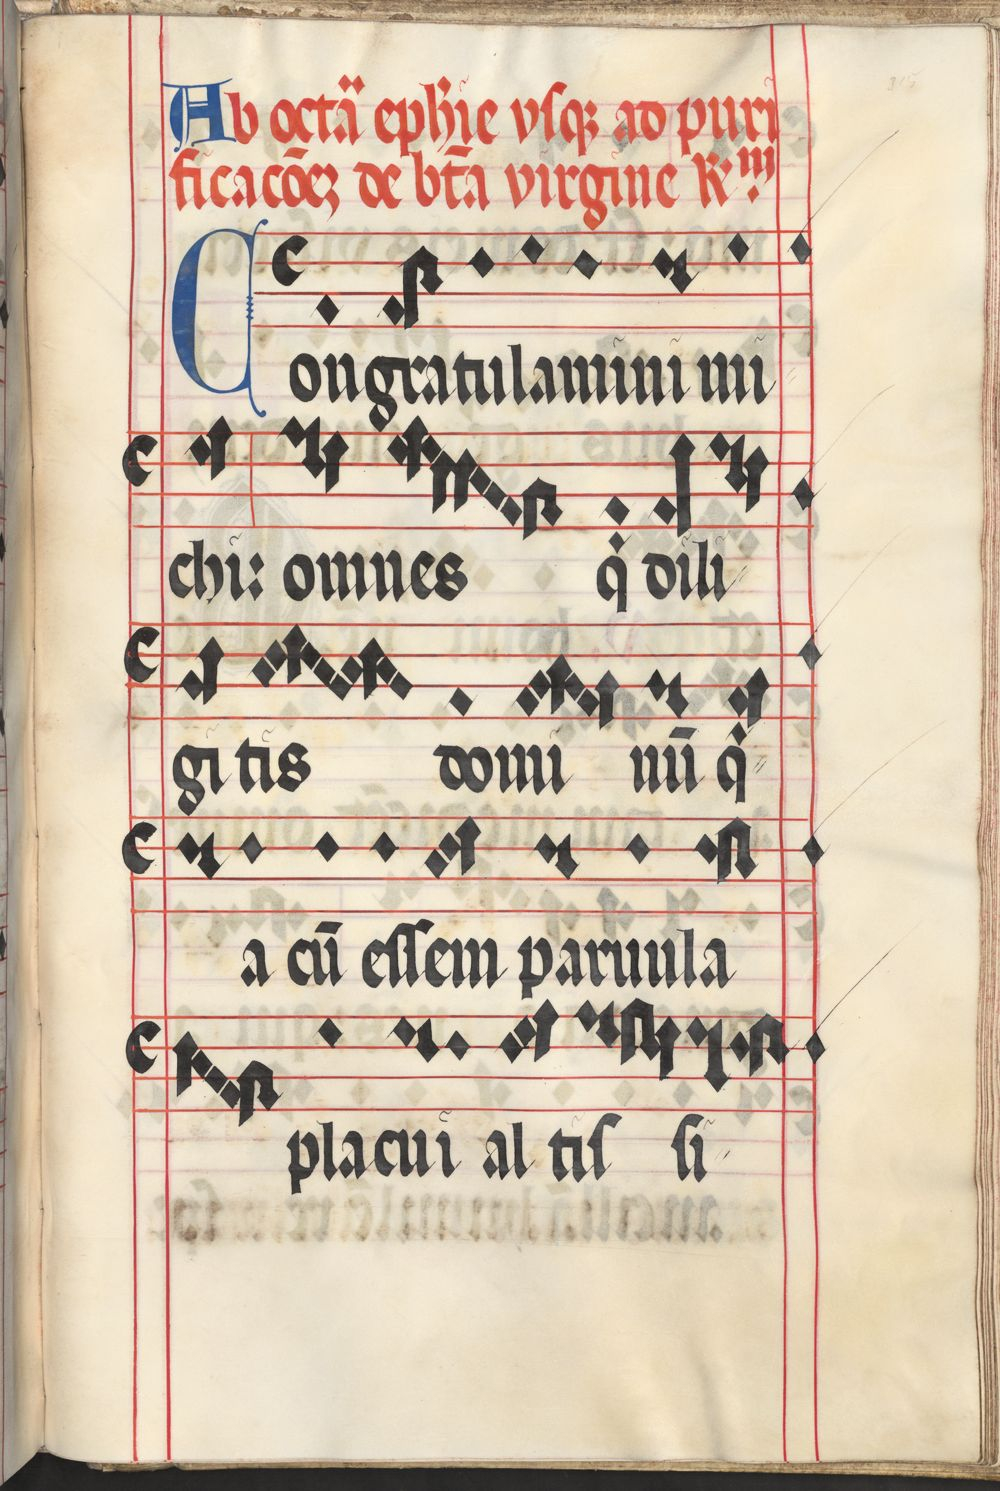 Ab octa̅ ephi̅e vsqꝫ ad puri
ficaco̅eꝫ de bt̅a virgine R iii
Congratulamini mi
chi: omnes q̇ dili
gi tis domi nu̅ q̇
a cu̅ essem paruula
placui al tis si